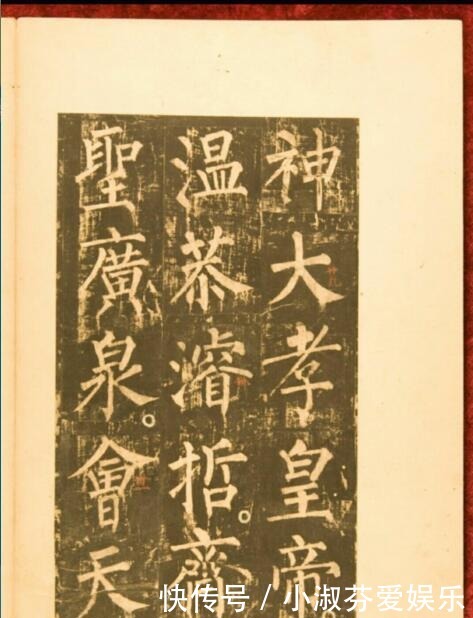 神大孝皇帝
温恭濬哲。齊
聖廣泉。會天
快传号 / 小淑芬爱娱乐